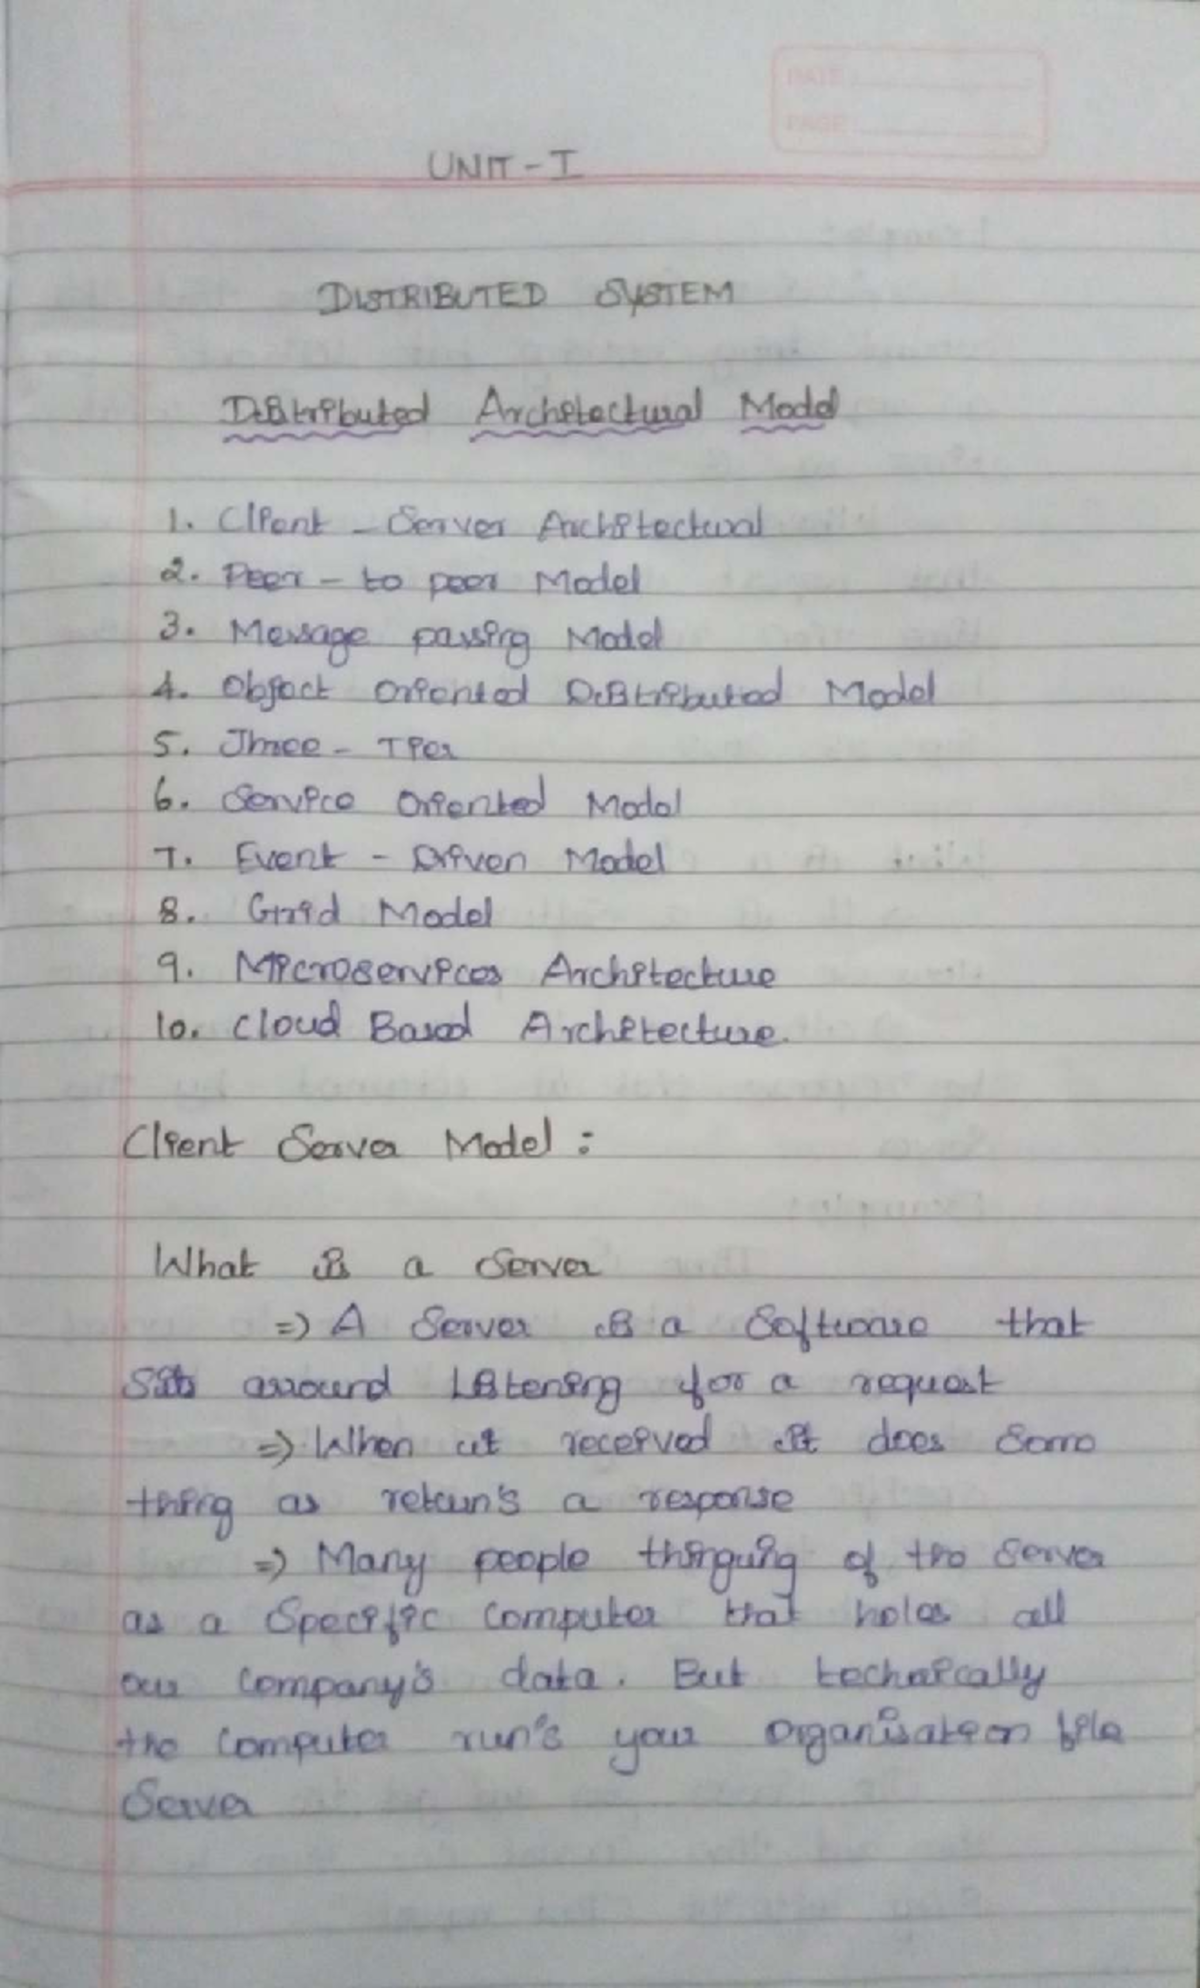 DATE:
PAGE:
UNIT - I
DISTRIBUTED SYSTEM
Distributed Architectural Model
1. Client - Server Architectural
2. Peer - to peer Model
3. Message passing Model
4. Object Oriented Distributed Model
5. Three - Tier
6. Service Oriented Model
7. Event - Driven Model
8. Grid Model
9. Microservices Architecture
10. Cloud Based Architecture.
Client Server Model :
What is a Server
=> A Server is a Software that
Sits arround Listening for a request
=> When it received it does Some
thing as retcun's a response
=> Many people thinguing of the Server
as a Specific Computer that holes all
our Company's data. But technically
the Computer run's your Organisation file
Server